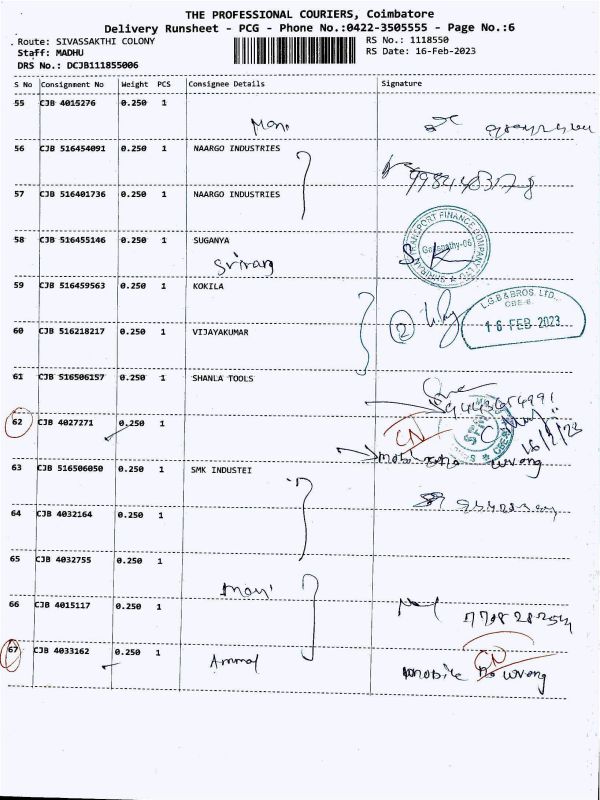 THE PROFESSIONAL COURIERS, Coimbatore
Delivery Runsheet - PCG - Phone No.:0422-3505555 - Page No.:6
Route: SIVASSAKTHI COLONY
RS No.: 1118550
Staff: MADHU
RS Date: 16-Feb-2023
DRS No.: DCJB111855006
S No Consignment No Weight PCS Consignee Details Signature
55 CJB 4015276 0.250 1
Mani
56 CJB 516454091 0.250 1 NAARGO INDUSTRIES
57 CJB 516401736 0.250 1 NAARGO INDUSTRIES
58 CJB 516455146 0.250 1 SUGANYA
SRIRAM TRANSPORT FINANCE COMPANY LTD
Ganapathy-06
S.K
Srirang
59 CJB 516459563 0.250 1 KOKILA
L.G.B & BROS. LTD.,
CBE-6.
16 FEB 2023
2
60 CJB 516218217 0.250 1 VIJAYAKUMAR
61 CJB 516506157 0.250 1 SHANLA TOOLS
9443654991
62 CJB 4027271 0.250 1
CN
16/2/23
wrong
63 CJB 516506050 0.250 1 SMK INDUSTEI
64 CJB 4032164 0.250 1
65 CJB 4032755 0.250 1
Mani
66 CJB 4015117 0.250 1
67 CJB 4033162 0.250 1
CN
Ammal
mobile no wrong